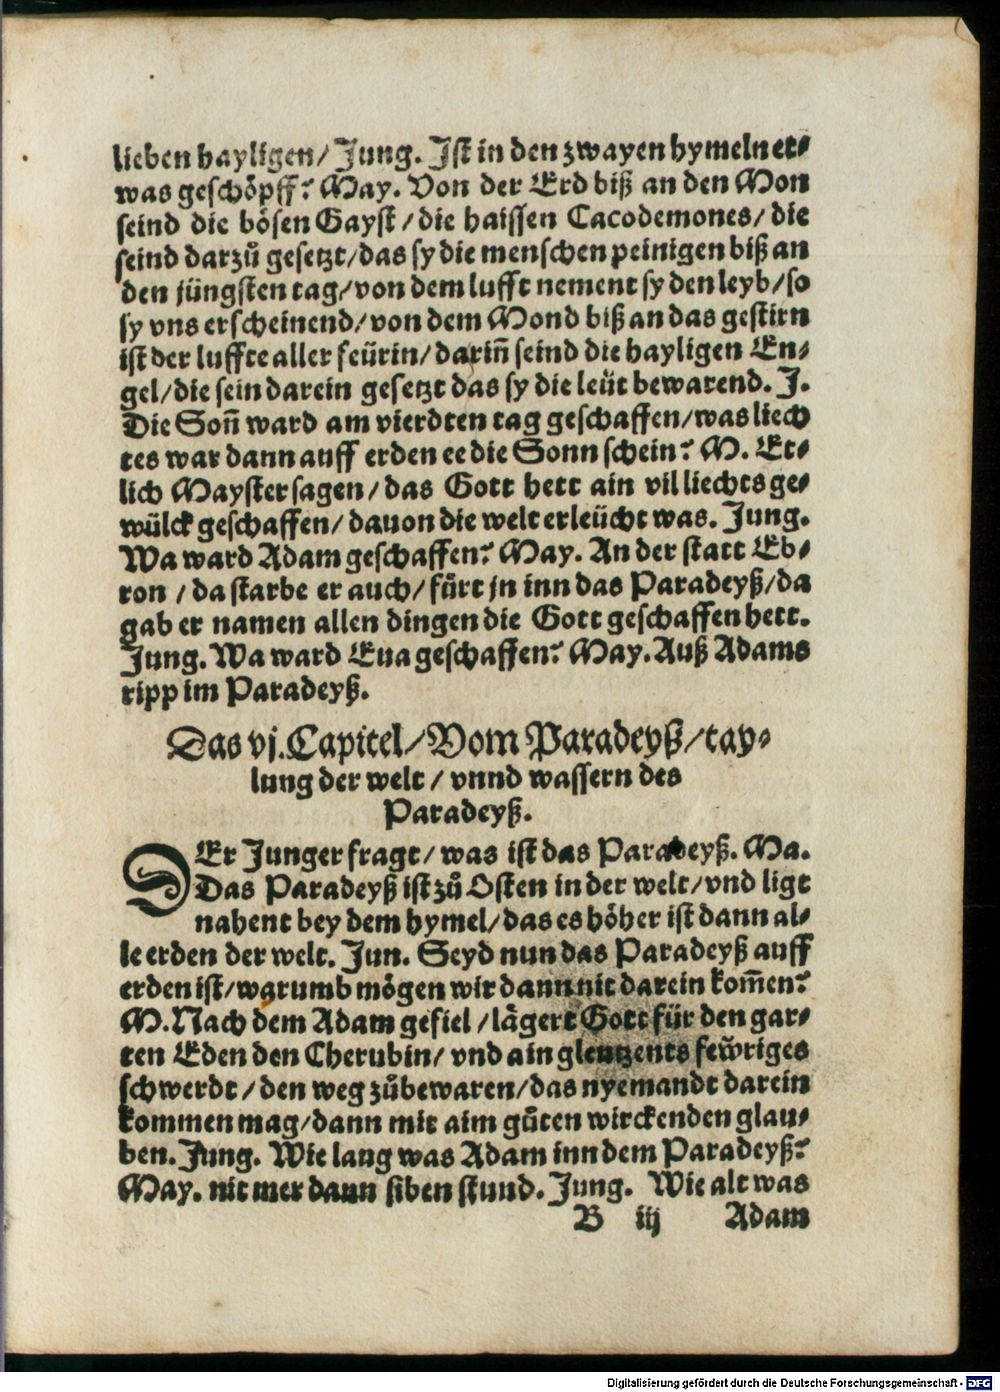 lieben hayligen/ Jung. Jst in den zwayen hymeln et⸗
was geschöpff? May. Von der Erd biß an den Mon
seind die bösen Gayst/ die haissen Cacodemones/ die
seind darzů gesetzt/ das sy die menschen peinigen biß an
den jüngsten tag/ von dem lufft nement sy den leyb/ so
sy vns erscheinend/ von dem Mond biß an das gestirn
ist der luffte aller feürin/ dariñ seind die hayligen En⸗
gel/ die sein darein gesetzt das sy die leüt bewarend. J.
Die Soñ ward am vierdten tag geschaffen/ was liech
tes war dann auff erden ee die Sonn schein? M. Et⸗
lich Mayster sagen/ das Gott hett ain vil liechts ge⸗
wülck geschaffen/ dauon die welt erleücht was. Jung.
Wa ward Adam geschaffen? May. An der statt Eb⸗
ron / da starbe er auch/ fůrt jn inn das Paradeyß/ da
gab er namen allen dingen die Gott geschaffen hett.
Jung. Wa ward Eua geschaffen? May. Auß Adams
ripp im Paradeyß.
Das vj. Capitel/ Vom Paradeyß/ tay⸗
lung der welt/ vnnd wassern des
Paradeyß.
DEr Junger fragt/ was ist das Paradeyß. Ma.
Das Paradeyß ist zů Osten in der welt/ vnd ligt
nahent bey dem hymel/ das es höher ist dann al⸗
le erden der welt. Jun. Seyd nun das Paradeyß auff
erden ist/ warumb mögen wir dann nit darein kom̃en?
M. Nach dem Adam gefiel / lägert Gott für den gar⸗
ten Eden den Cherubin/ vnd ain glentzents fewͤriges
schwerdt/ den weg zůbewaren/ das nyemandt darein
kommen mag/ dann mit aim gůten wirckenden glau⸗
ben. Jung. Wie lang was Adam inn dem Paradeyß?
May. nit mer dann siben stund. Jung. Wie alt was
B iij Adam
Digitalisierung gefördert durch die Deutsche Forschungsgemeinschaft - DFG